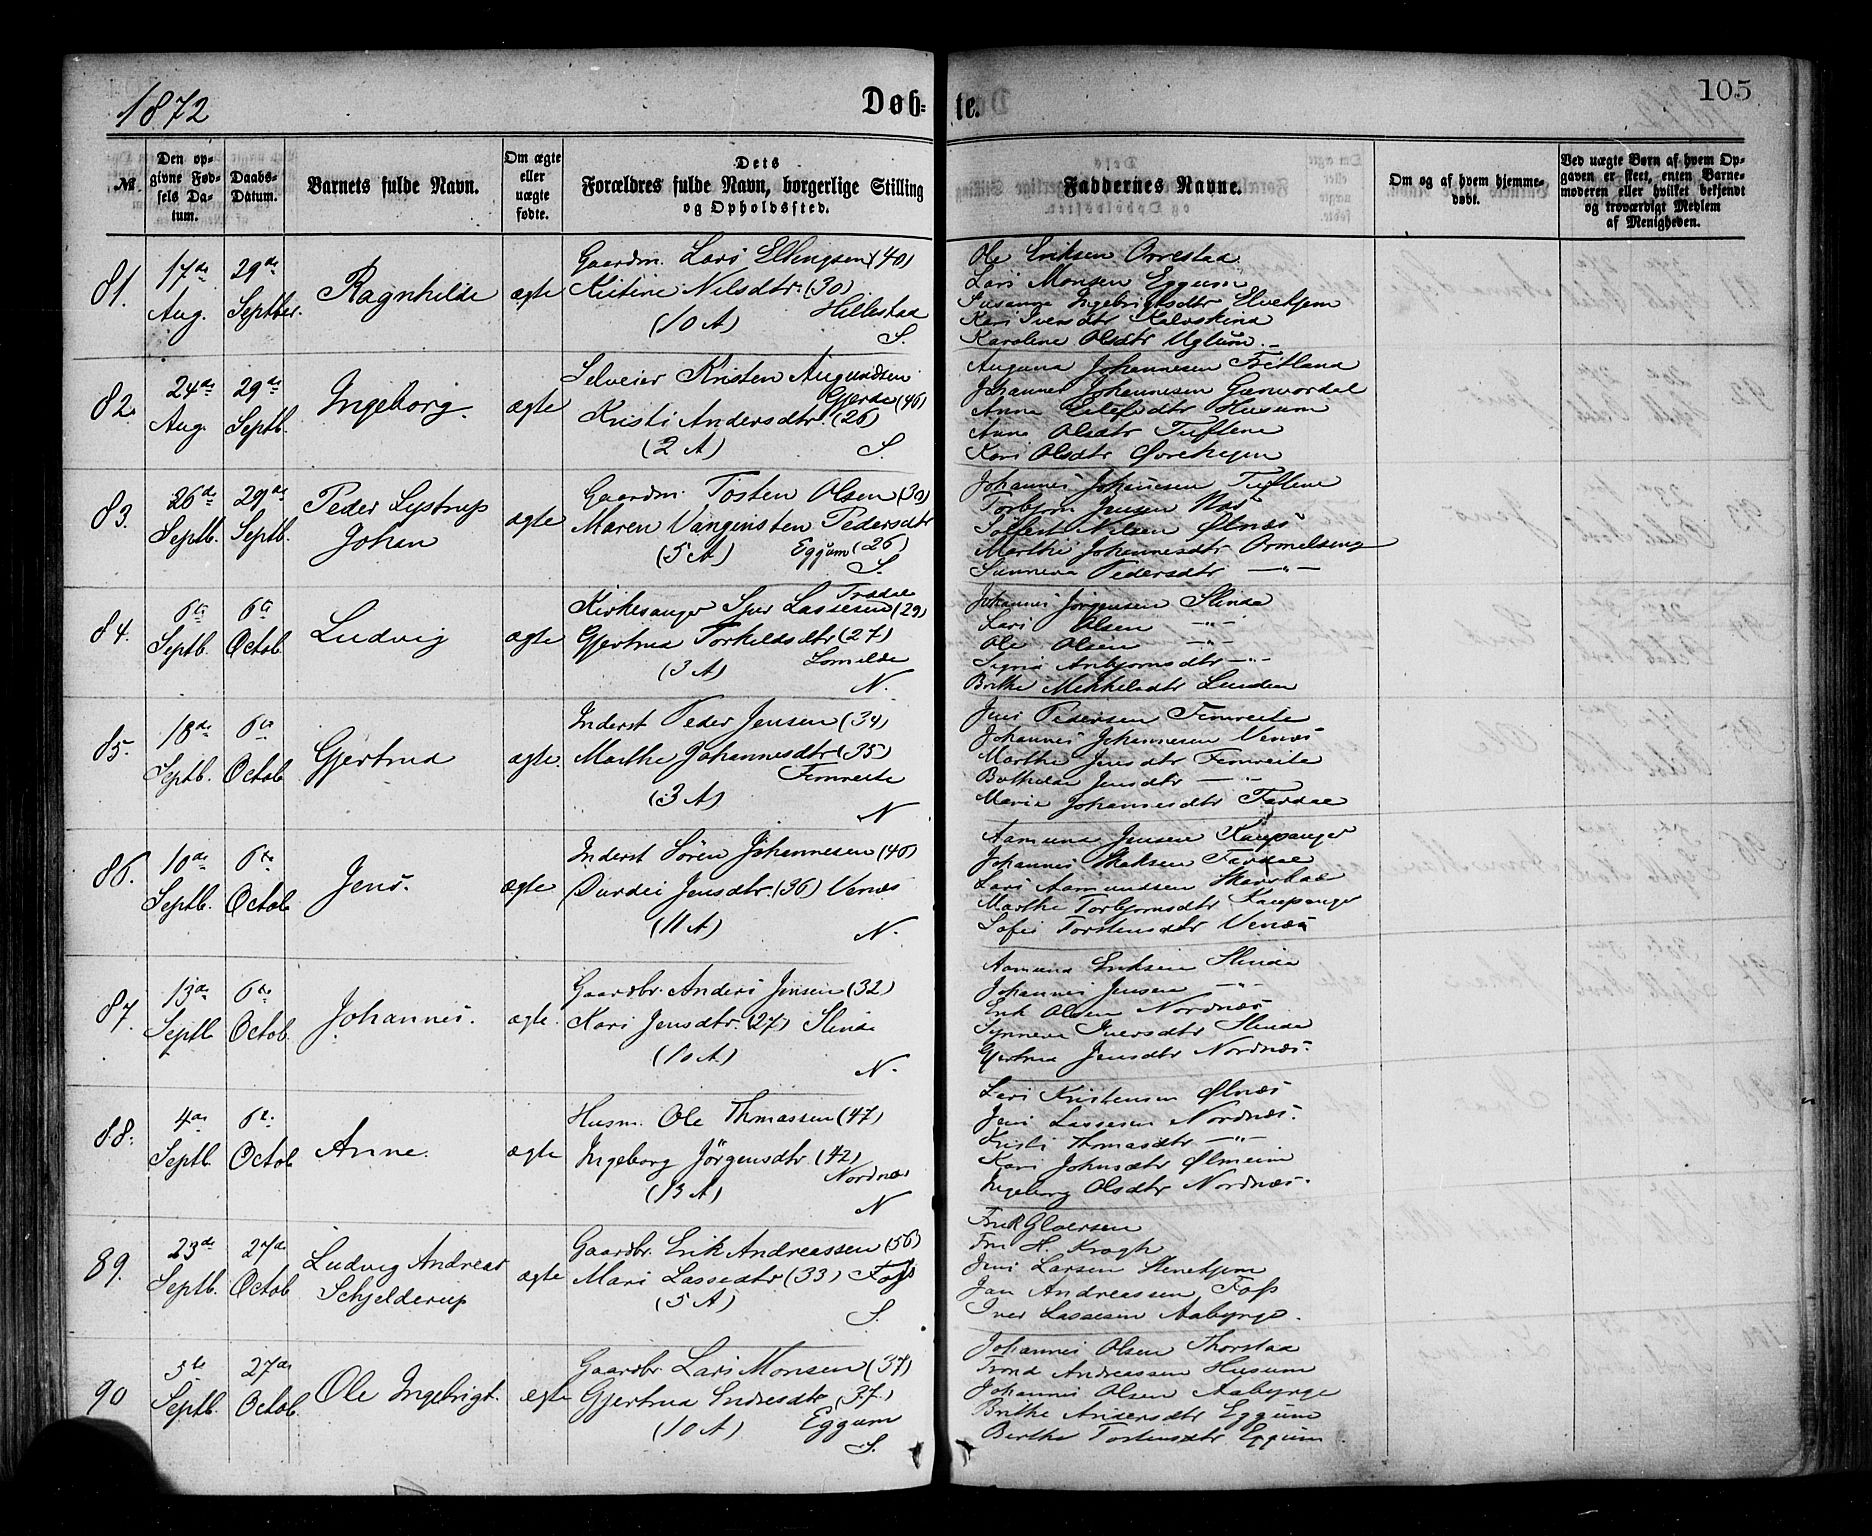 1872
Døb-
te.
105
№
Den op-
givne Fød-
sels Da-
tum.
Daabs-
Datum.
Barnets fulde Navn.
Om ægte
eller
uægte
fødte.
Dets
Forældres fulde Navn, borgerlige Stilling
og Opholdssted.
Faddernes Navne.
Om og af hvem hjemme-
døbt.
Ved uægte Børn af hvem Op-
gaven er skeet, enten Barne-
moderen eller hvilket bekjendt
og troværdigt Medlem
af Menigheden.
81.
17de
Aug.
29de
Septber.
Ragnhilde
ægte
Gaardm. Lars Ellingsen (40)
Kristine Nilsdtr. (30)
Hillestad
(10 A)
S.
Ole Eriksen Ørrestad
Lars Monsen Eggum
Susanna Ingebrigtsdtr Elvekjem
Kari Iversdtr Kalvskind
Karoline Olsdtr Uglum
82.
24de
Aug.
29de
Septb.
Ingeborg.
ægte
Selveier Kristen Augundsen
Gjerde (46)
Kristi Andersdtr. (26)
(2 A)
S.
Augund Johannesen Fretland
Johannes Johannesen
Anna Husum
Anna Olsdtr Tuftene
Kari Olsdtr
83.
26de
Septb.
29de
Septb.
Peder Lystrup
Johan
ægte
Gaardm. Tosten Olsen (30)
Maren Vangensten Pedersdtr
(5 A) Eggum (26)
S.
Johannes Johannesen Tuftene
Torbjorn Jensen Nar
Solfest Nilsen Ølnæs
Marthe Johannesdtr
Sunneva Pedersdtr —"—
84.
6te
Septb.
6te
Octob.
Ludvig
ægte
Kirkesanger Sjur Lassesen (29)
Gjertrud Torkildsdtr (27)
(3 A) Lomelde
N.
Johannes Jørgensen Slinde
Lars Olsen —"—
Ole Olsen —"—
Sigrid Anbjørnsdtr —"—
Brithe Mikkelsdtr Linden
85.
18de
Septb.
6te
Octob
Gjertrud
ægte.
Inderst Peder Jensen (34)
Marthe Johannesdtr (35)
Fimreite
(3 A)
N
Jens Pedersen Fimreite
Johannes Johannesen Venæs
Marthe Jensdtr Fimreite
Bothilde Jensdtr —"—
Marie Johannesdtr Fardal
86.
10de
Septb.
6te
Octob
Jens.
ægte
Inderst Søren Johannesen (40)
Durdei Jensdtr. (36) Venæs
(11 A)
N.
Aamund Jensen Kaupanger
Johannes Fardal
Lars Aamundsen
Marthe Torbjornsdtr Kaupanger
Sofie Torstensdtr Venæs
87.
13de
Septb
6te
Octob
Johannes.
ægte.
Gaardbr. Anders Jensen (32)
Kari Jensdtr. (27) Slinde
(10 A)
N.
Aamund Eriksen Slinde
Johannes Jensen —"—
Erik Olsen Nordnæs
Synneva Iversdtr Slinde
Gjertrud Jensdtr Nordnæs.
88.
4de
Septb
6te
Octob
Anne.
ægte
Husm. Ole Thmassen (47)
Ingeborg Jörgensdtr. (42)
Nordnæs
(13 A)
N
Lars Kristensen Ølnæs
Jens Lassesen Nordnæs.
Kristi Thomasdtr —"—
Kari Johnsdtr Ølmeim
Ingeborg Olsdtr Nordnæs.
89.
23de
Septb.
27de
Octob
Ludvig Andreas
Schjelderup
ægte
Gaardbr. Erik Andreassen (56)
Mari Lassedtr (33) Foss
(5 A)
S.
Gløersen
Fru H. Krogh
Jens Larsen Stenekjem
Jan Andreassen Foss
Iver Lassesen Aabyrge.
90
5te
Septb.
27de
Octob.
Ole Ingebrigt.
ægte
Gaardbr. Lars Monsen (37)
Gjertrud Endresdtr (37)
(10 A) Eggum
S.
Johannes Olsen Thorstad
Trond Andreassen Husum
Johannes Olsen Aabyrge
Brithe Andersdtr Eggum
Berthe Tostensdtr Eggum